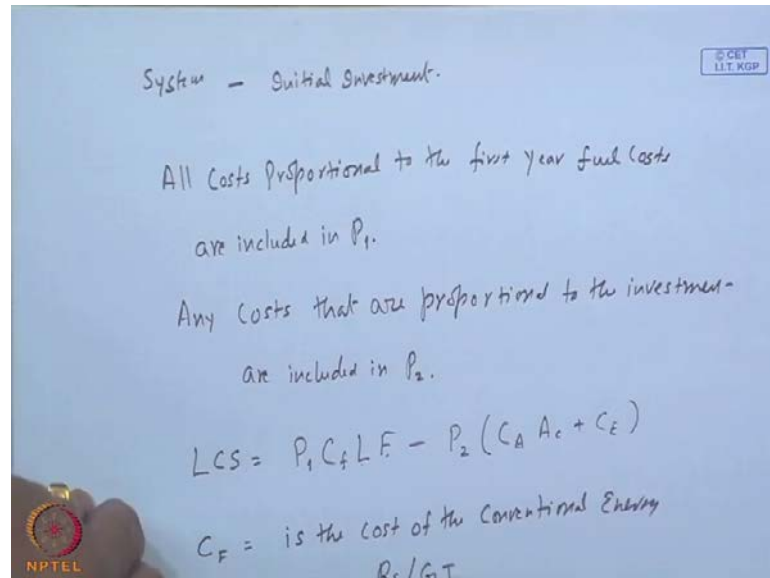 © CET
I.I.T. KGP
System - Initial Investment.
All Costs Proportional to the first year fuel Costs
are included in P₁.
Any Costs that are proportional to the investmen-
are included in P₂.
LCS = P₁ C_f L F - P₂ (C_A A_c + C_E)
C_F = is the cost of the Conventional Energy
Rs/GJ
NPTEL